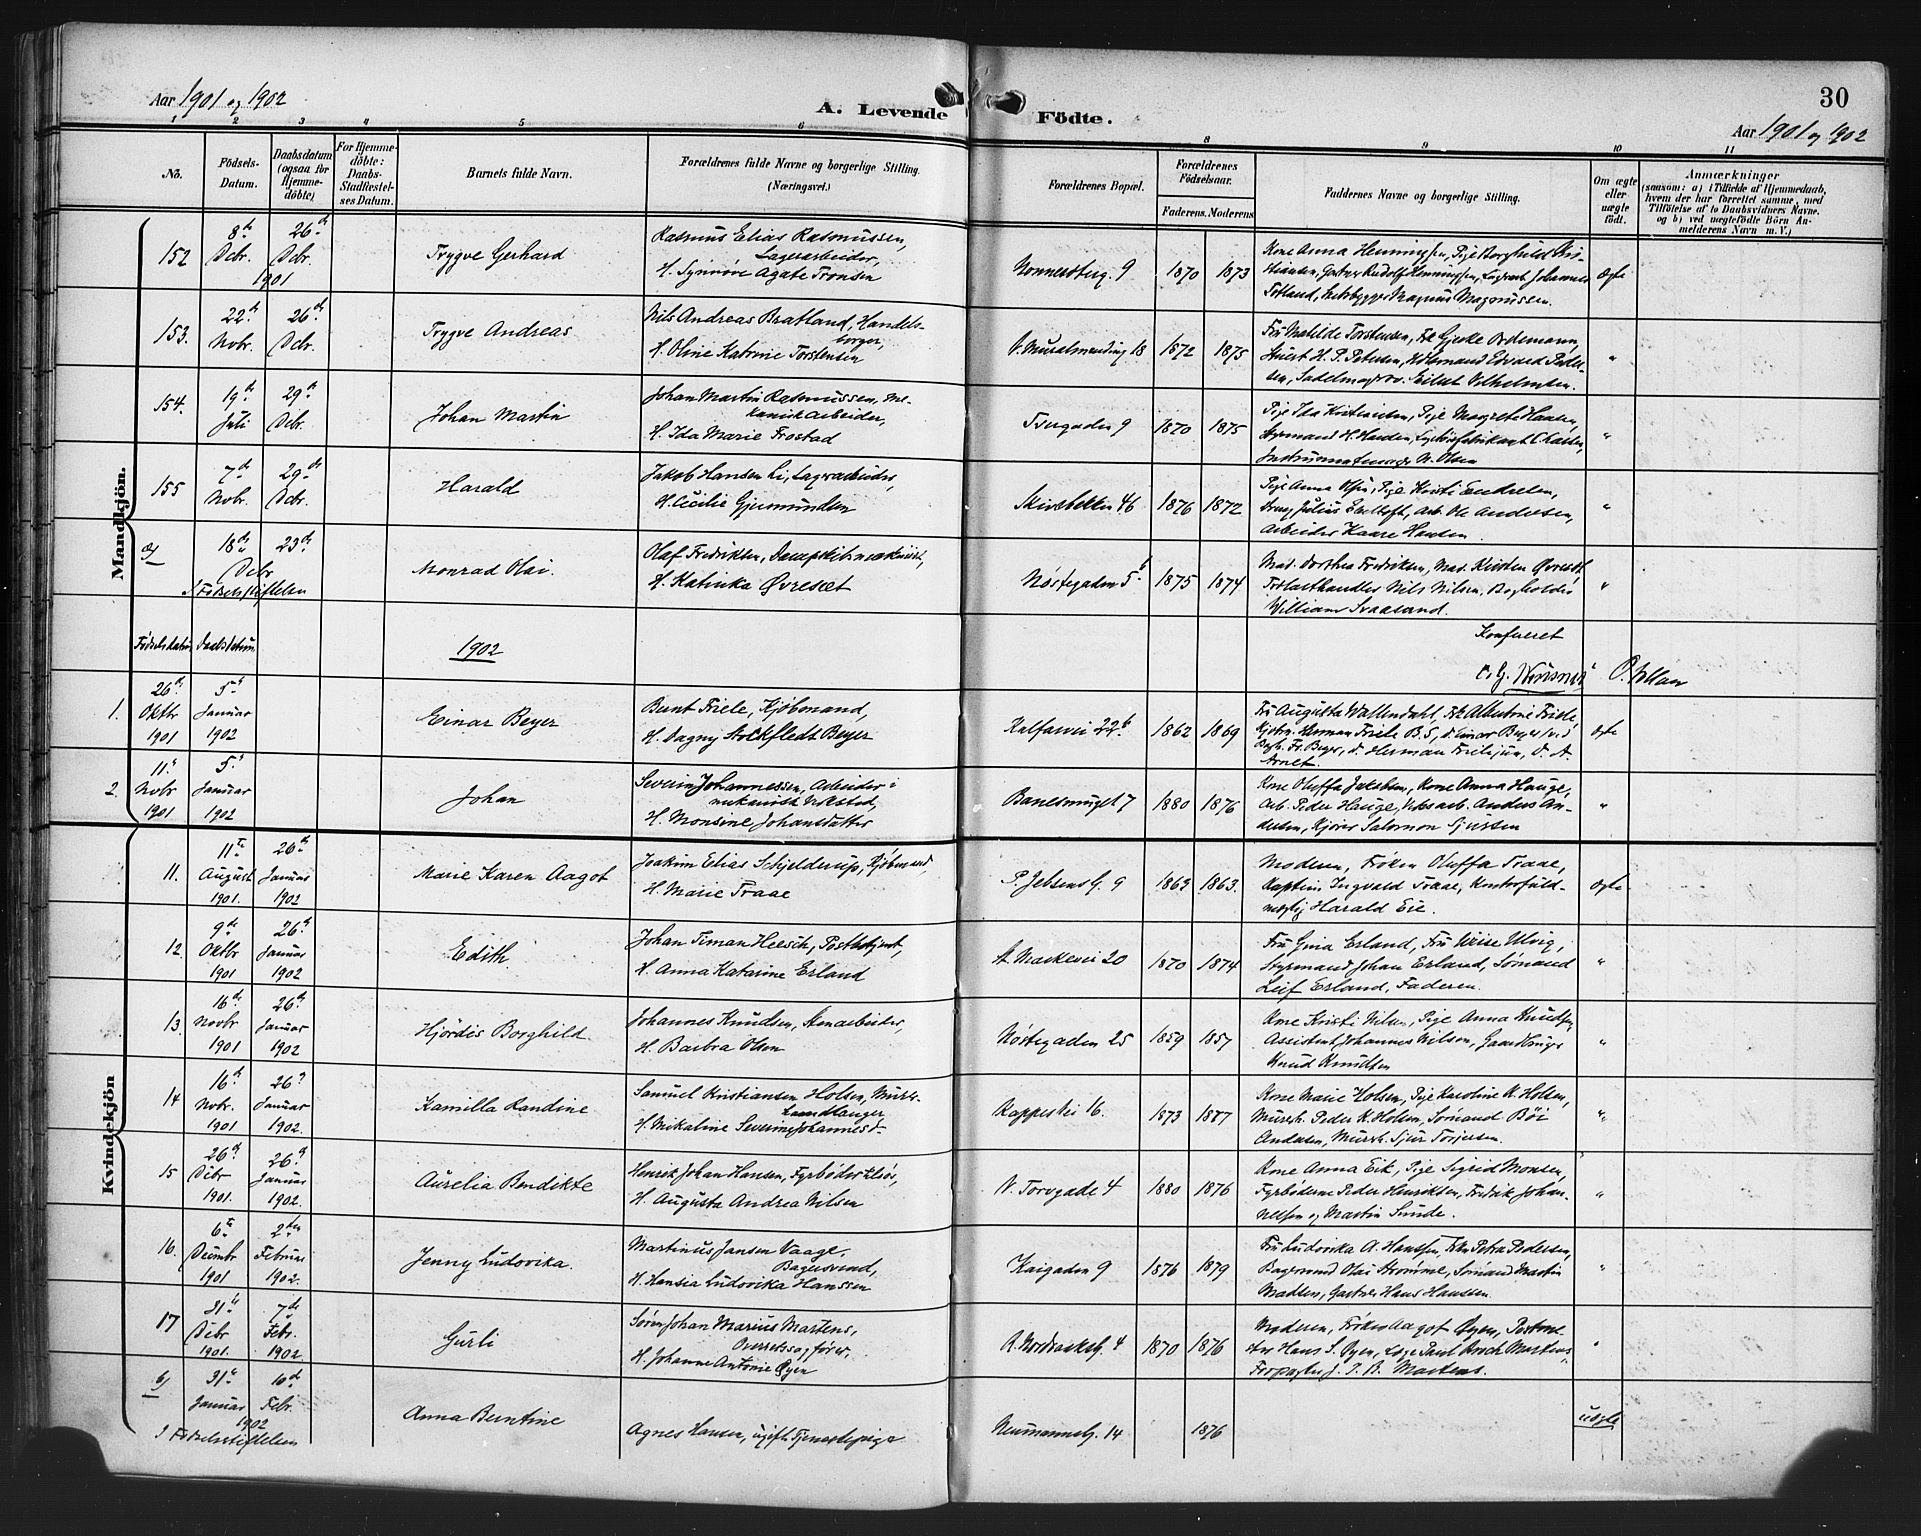 Aar 1901 og 1902
A. Levende Födte.
30
Aar 1901 og 1902
1 2 3 4 5 6 8 9 10 11
No.
Födsels-Datum.
Daabsdatum (ogsaa for Hjemmedöbte)
For Hjemmedöbte: Daabs-Stadfæstelses Datum.
Barnets fulde Navn.
Forældrenes fulde Navne og borgerlige Stilling.
(Næringsvei.)
Forældrenes Bopæl.
Forældrenes Födselsaar.
Faderens. Moderens
Faddernes Navne og borgerlige Stilling.
Om ægte eller uægte födt.
Anmærkninger
(saasom: a) i Tilfælde af Hjemmedaab, hvem der har forrettet samme, med Tilföielse af to Daabsvidners Navne. og b) ved uægtefödte Börn Anmelderens Navn m. V.)
Mandkjön.
152 8de Dcbr. 1901 26de Dcbr. Trygve Gerhard
Rasmus Elias Rasmussen, Lagerarbeider,
H. Synnøve Agate Tronsen
9 1870 1873
Kone Anna Henningsen, Pige Borghild
Gartner Rudolf Henningsen, Johannes
Magnus Magnussen.
Ægte
153. 22de Novbr. 26de Dcbr. Trygve Andreas
Nils Andreas Bratland, Handelsborger,
H. Oline Katrine Torstensen
V. Muralmending 18 1872 1875
Fru Matilde Torstensen, Frk Gjeske Ordemann,
H. P. Petersen, Edvard Pedersen,
Eilert Vilhelmsen.
"
154. 19de Juli 29de Dcbr. Johan Martin
Johan Martin Rasmussen, mekanisk Arbeider,
H. Ida Marie Frostad
9 1870 1875
Pige Ida Kristiansen, Pige Margrete Hansen,
Styrmand H. Hansen,
Instrumentmager N. Olsen
"
155 7de Novbr. 29de Dcbr. Harald
Jakob Hansen Li, Lagerarbeider,
H. Cecilie Gjermundsen
Skivebakken 46 1876 1872
Pige Anna Olsen, Pige Kristi Endresen,
Julius Arb. Ole Andersen,
Arbeider Kaare Hansen
"
18de Dcbr 23de Monrad Olai.
I Fødselsstiftelsen
Olaf Fredriksen, Dampskibsmaskinist,
H. Katinka Øvreset
Nøstegaden 5b 1875 1874
Mad. Dorthea Fredriksen, Mad. Kirsten Øvreset
Trælasthandler Nils Nilsen, Bogholder
William Svaasand.
"
Fødselsdatum Daabsdatum
1902
Konfereret
1. 26de Oktbr 1901 5te Januar 1902 Einar Beyer
Bernt Friele, Kjøbmand,
H. Dagny Stockfledt Beyer
Kalfarvei 22b 1862 1869
Fru Augusta Wallendahl, Frk Albertine Friele,
Kjøbm. Herman Friele B. S., do Einar Beyer
Fr. Beyer, do Herman Friele jun,
Ægte
2. 11te Novbr 1901 5te Januar 1902 Johan
Severin Johannessen, Arbeider i
mekanisk Verksted,
H. Monsine Johansdatter
Banesmuget 7 1880 1876
Kone Oluffa Jakobsen, Kone Anna Hauge,
Arb. Peder Hauge, Anders Andersen,
Kjører Salomon Sjursen
"
Kvindekjön
11. 11te August 1901. 26de Januar 1902 Marie Karen Aagot
Joakim Elias Schjelderup, Kjøbmand,
H. Marie Traae
P. Jebsens G. 9 1862 1863.
Moderen, Frøken Oluffa Traae,
Kaptein Ingvald Traae, Kontorfuldmægtig Harald Eie.
Ægte
12. 9de Oktbr 1901 26de Januar 1902 Edith.
Johan Timan Heesch, Postbetjent,
H. Anna Katarine Erland
St. Markevei 20 1870 1874
Fru Gina Erland, Fru Ulvig,
Styrmand Johan Erland, Sømand
Leif Erland, Faderen.
"
13. 16de Novbr 1901 26de Januar 1902 Hjördis Borghild.
Johannes Knudsen, Stenarbeider,
H. Barbra Olsen
Nøstegaden 25 1859 1857
Kone Kristi Nilsen, Pige Anna Knudsen,
Assistent Johannes Nilsen, Gaardbruger
Knud Knudsen
"
14 16de Novbr. 1901 26de Januar 1902. Kamilla Randine
Samuel Kristiansen Holsen, Murerhandlanger
H. Mikaline Severine Johannesd.
16. 1873 1877
Kone Marie Holsen, Pige Karoline K. Holsen,
Murerh. Peder K. Holsen, Sømand Böi
Andersen, Murerh. Sjur Torjersen.
"
15 26de Dcbr 1901. 26de Januar 1902. Aurelia Bendikte
Henrik Johan Hansen, Fyrbøder tilsøs,
H. Augusta Andrea Nilsen
N. Torvgade 4 1880 1876
Kone Anna Eik, Pige Sigrid Monsen,
Fyrbøderne Peder Henriksen, Fredrik Johannessen og Martin Sunde.
"
16. 6te Decmbr. 1901 2den Februar 1902. Jenny Ludovika.
Martinus Jansen Vaage,
Bagersvend,
H. Hansia Ludovika Hanssen
Kaigaden 9 1876 1879
Fru Ludovika A. Hanssen, Frk Petra Pedersen,
Bagersvend Olai Strømme, Sømand Martin
Madsen, Gartner Hans Hanssen.
"
17 31te Dcbr 1901. 7de Febr. 1902. Gurli
Søren Johan Marius Martens,
Overretssagfører,
H. Johanne Antonie Øyen
R. Nordraaksg. 4 1870 1876
Moderen, Frøken Aagot Øyen, Postmester Hans S. Øyen, Læge Paul Martens
Forpagter J. P. B. Martens.
"
6) 31te Januar 1902 10de Febr. Anna Berntine
I Fødselsstiftelsen
Agnes Hansen, ugift Tjenestepige
Neumannsg. 14 1876
uægte